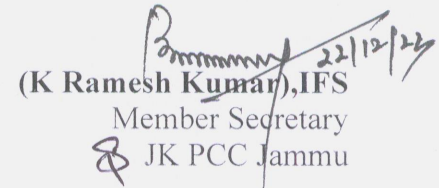 22/12/23
(K Ramesh Kumar),IFS
Member Secretary
JK PCC Jammu